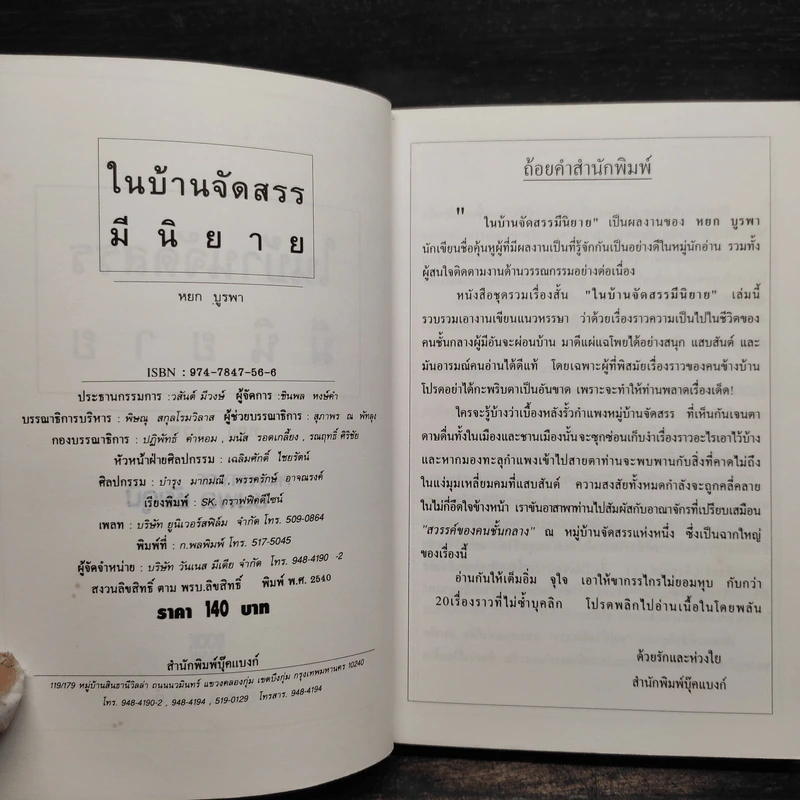 ในบ้านจัดสรร
มีนิยาย
หยก บูรพา
ISBN : 974-7847-56-6
ประธานกรรมการ :วสันต์ มีวงษ์ ผู้จัดการ :ชินพล หงษ์คำ
บรรณาธิการบริหาร : พิษณุ สกุลโรมวิลาส ผู้ช่วยบรรณาธิการ : สุภาพร ณ พัทลุง
กองบรรณาธิการ : ปฏิพัทธ์ คำหอม , มนัส รอดเกลี้ยง , รณฤทธิ์ ศิริชัย
หัวหน้าฝ่ายศิลปกรรม : เฉลิมศักดิ์ ไชยรัตน์
ศิลปกรรม : บำรุง มากมณี , พรรครักษ์ อาจณรงค์
เรียงพิมพ์ : SK. กราฟฟิคดีไซน์
เพลท : บริษัท ยูนิเวอร์สฟิล์ม จำกัด โทร. 509-0864
พิมพ์ที่ : ก.พลพิมพ์ โทร. 517-5045
ผู้จัดจำหน่าย : บริษัท วันเนส มีเดีย จำกัด โทร. 948-4190 -2
สงวนลิขสิทธิ์ ตาม พรบ.ลิขสิทธิ์ พิมพ์ พ.ศ. 2540
ราคา 140 บาท
สำนักพิมพ์บุ๊คแบงก์
119/179 หมู่บ้านสินธานีวิลล่า ถนนนวมินทร์ แขวงคลองกุ่ม เขตบึงกุ่ม กรุงเทพมหานคร 10240
โทร. 948-4190-2 , 948-4194 , 519-0129 โทรสาร. 948-4194
ถ้อยคำสำนักพิมพ์
" ในบ้านจัดสรรมีนิยาย" เป็นผลงานของ หยก บูรพา
นักเขียนชื่อคุ้นหูผู้ที่มีผลงานเป็นที่รู้จักกันเป็นอย่างดีในหมู่นักอ่าน รวมทั้ง
ผู้สนใจติดตามงานด้านวรรณกรรมอย่างต่อเนื่อง
หนังสือชุดรวมเรื่องสั้น "ในบ้านจัดสรรมีนิยาย" เล่มนี้
รวบรวมเอางานเขียนแนวหรรษา ว่าด้วยเรื่องราวความเป็นไปในชีวิตของ
คนชั้นกลางผู้มีอันจะผ่อนบ้าน มาตีแผ่แฉโพยได้อย่างสนุก แสบสันต์ และ
มันอารมณ์คนอ่านได้ดีแท้ โดยเฉพาะผู้ที่พิสมัยเรื่องราวของคนข้างบ้าน
โปรดอย่าได้กะพริบตาเป็นอันขาด เพราะจะทำให้ท่านพลาดเรื่องเด็ด!
ใครจะรู้บ้างว่าเบื้องหลังรั้วกำแพงหมู่บ้านจัดสรร ที่เห็นกันเจนตา
ดาษดื่นทั้งในเมืองและชานเมืองนั้นจะซุกซ่อนเก็บงำเรื่องราวอะไรเอาไว้บ้าง
และหากมองทะลุกำแพงเข้าไปสายตาท่านจะพบพานกับสิ่งที่คาดไม่ถึง
ในแง่มุมเหลี่ยมคมที่แสบสันต์ ความสงสัยทั้งหมดกำลังจะถูกคลี่คลาย
ในไม่กี่อึดใจข้างหน้า เราขันอาสาพาท่านไปสัมผัสกับอาณาจักรที่เปรียบเสมือน
"สวรรค์ของคนชั้นกลาง" ณ หมู่บ้านจัดสรรแห่งหนึ่ง ซึ่งเป็นฉากใหญ่
ของเรื่องนี้
อ่านกันให้เต็มอิ่ม จุใจ เอาให้ขากรรไกรไม่ยอมหุบ กับกว่า
20เรื่องราวที่ไม่ซ้ำบุคลิก โปรดพลิกไปอ่านเนื้อในโดยพลัน
ด้วยรักและห่วงใย
สำนักพิมพ์บุ๊คแบงก์